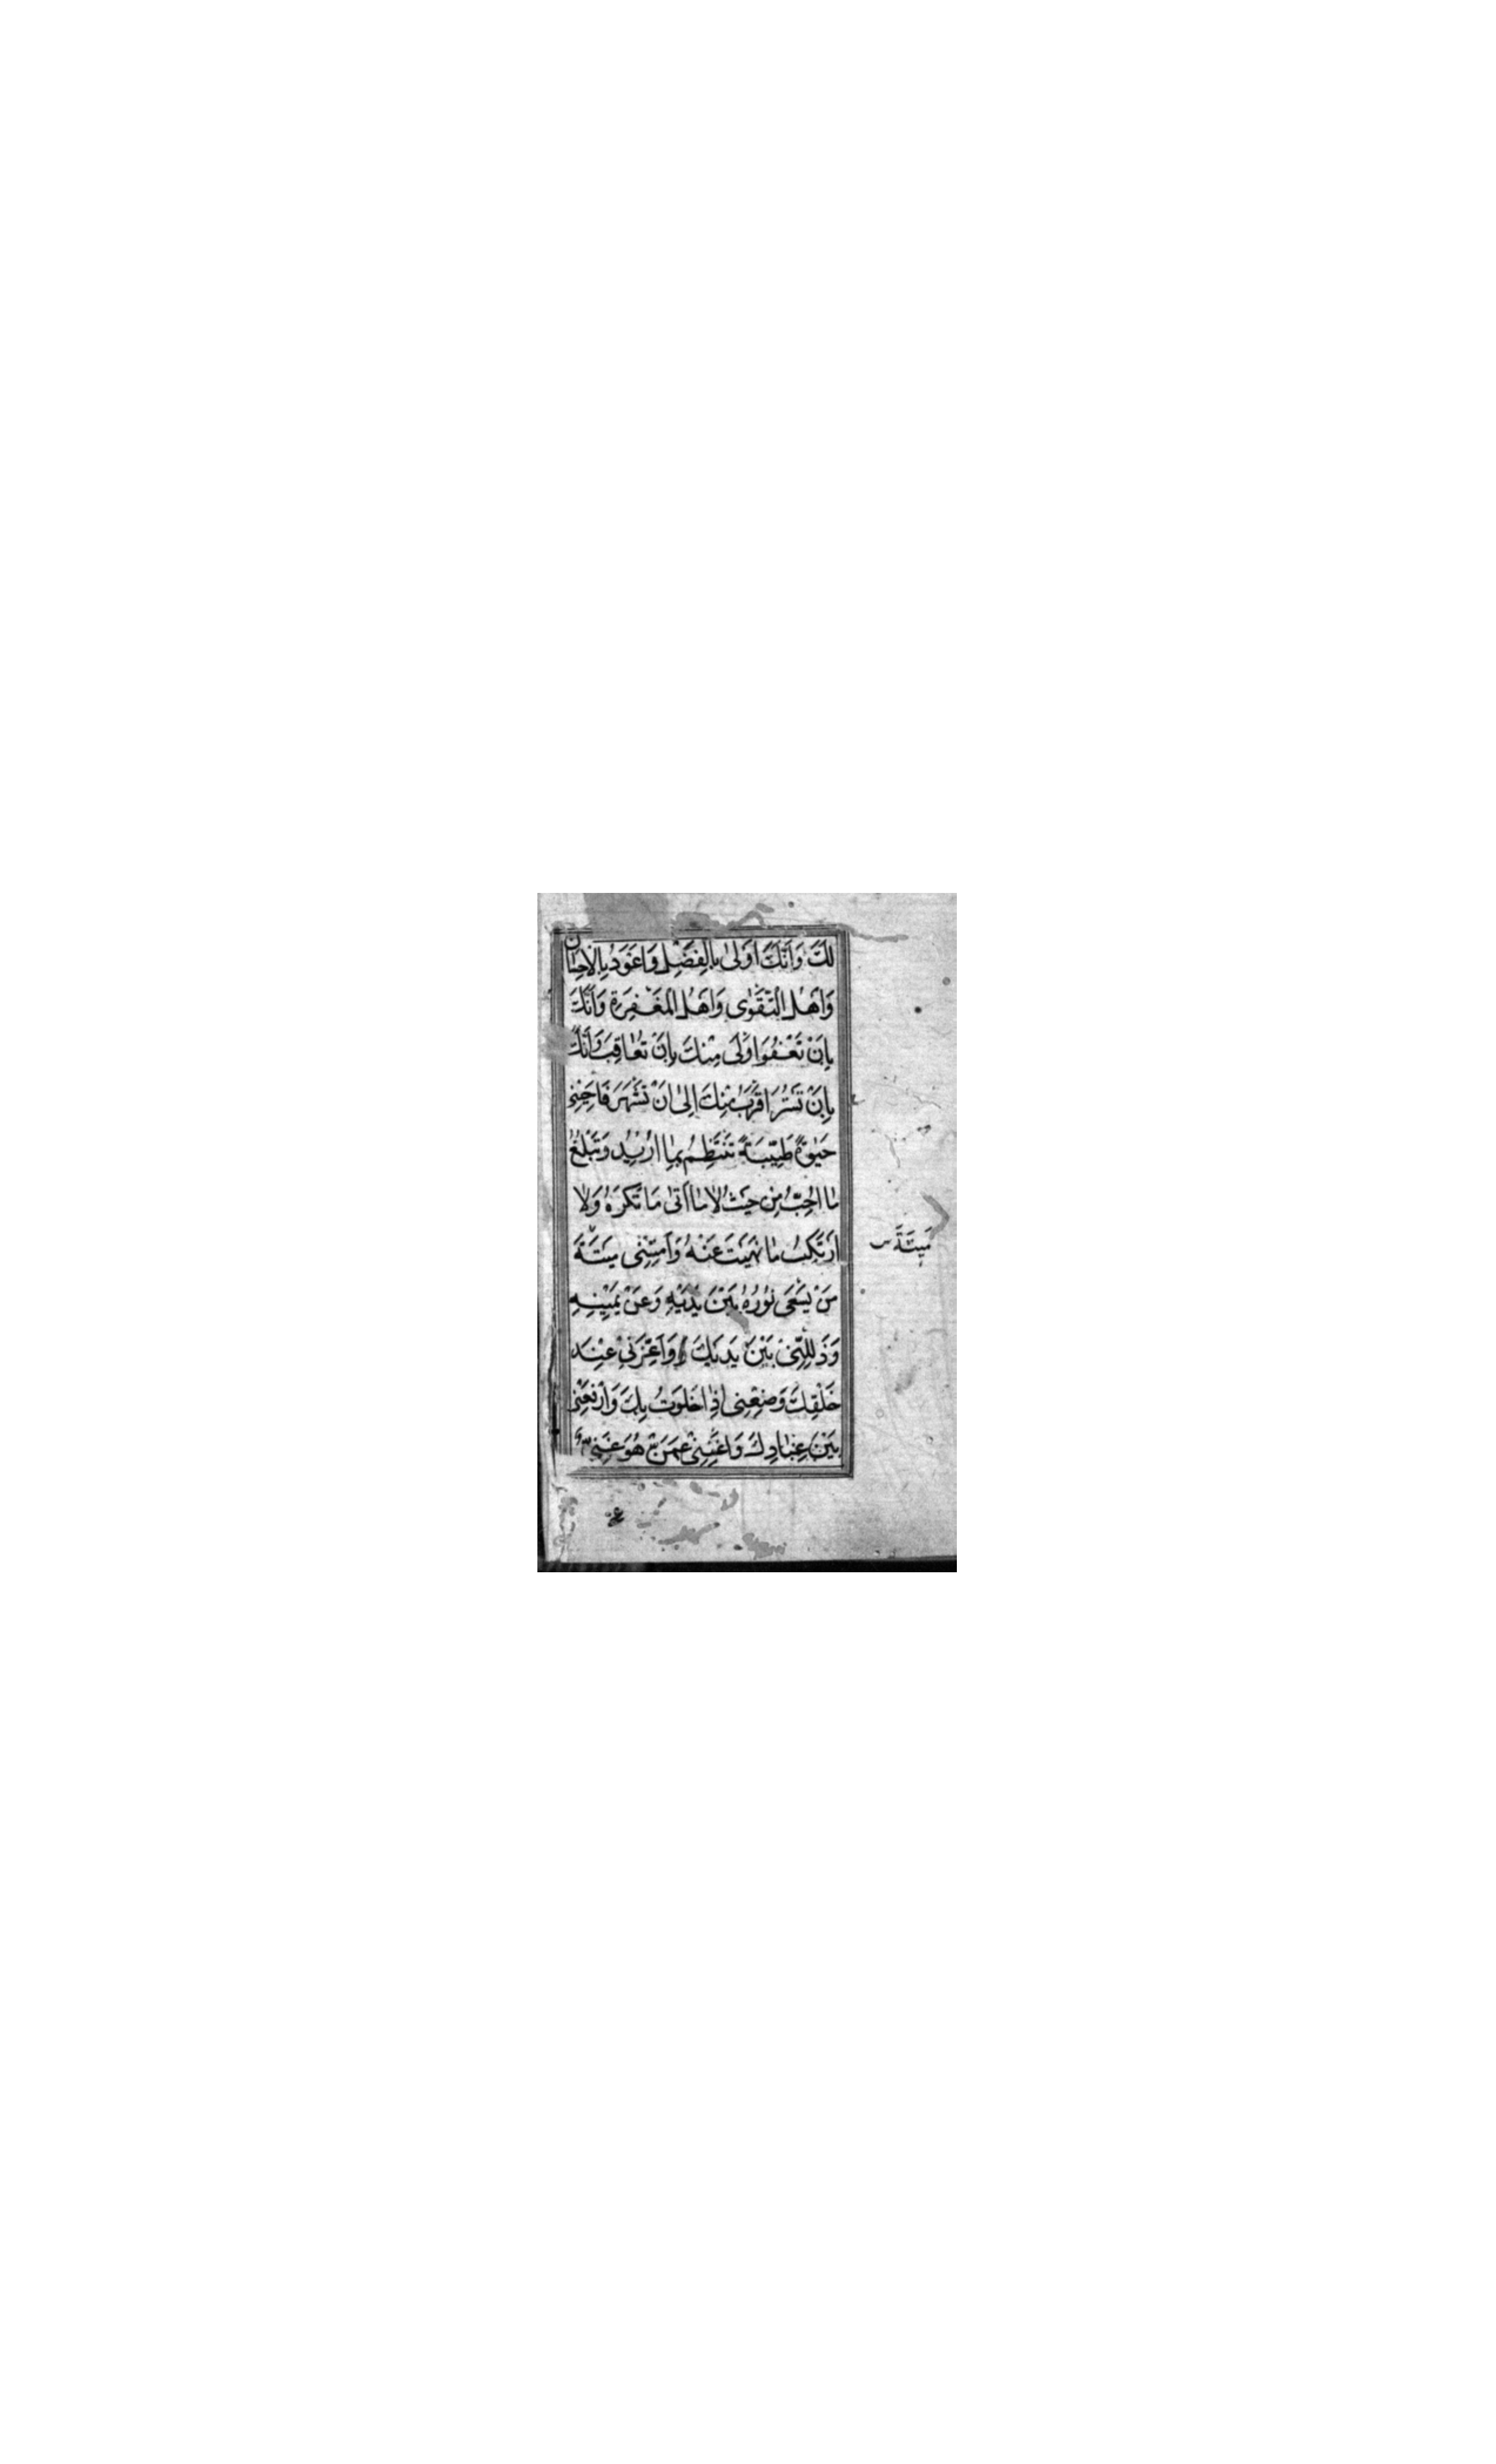 لَكَ وَاَنَّكَ اَوْلٰى بِالْفَضْلِ وَاَعْوَدُ بِالْاِحْسٰانِ
وَاَهْلُ التَّقْوٰى وَاَهْلُ الْمَغْفِرَةِ وَاَنَّكَ
بِاَنْ تَعْفُوَ اَوْلٰى مِنْكَ بِاَنْ تُعٰاقِبَ وَاَنَّكَ
بِاَنْ تَسْتُرَ اَقْرَبُ مِنْكَ اِلٰى اَنْ تَشْهَرَ فَاَحْيِنِى
حَيٰوةً طَيِّبَةً تَنْتَظِمُ بِمٰا اُرٖيدُ وَتَبْلُغُ
مٰا اُحِبُّ مِنْ حَيْثُ لٰا اٰتٖى مٰا تَكْرَهُ وَلٰا
اَرْتَكِبُ مٰا نَهَيْتَ عَنْهُ وَاَمِتْنِى مٖيتَةَ
مَنْ يَسْعٰى نُوْرُهُ بَيْنَ يَدَيْهِ وَعَنْ يَمٖيْنِهِ
وَذَلِّلْنِى بَيْنَ يَدَيْكَ وَاَعِزَّنِى عِنْدَ
خَلْقِكَ وَضَعْنِى اِذٰا خَلَوْتُ بِكَ وَارْفَعْنِى
بَيْنَ عِبٰادِكَ وَاَغْنِنِى عَمَّنْ هُوَ غَنِىٌّ
مَيِّتَةَ س